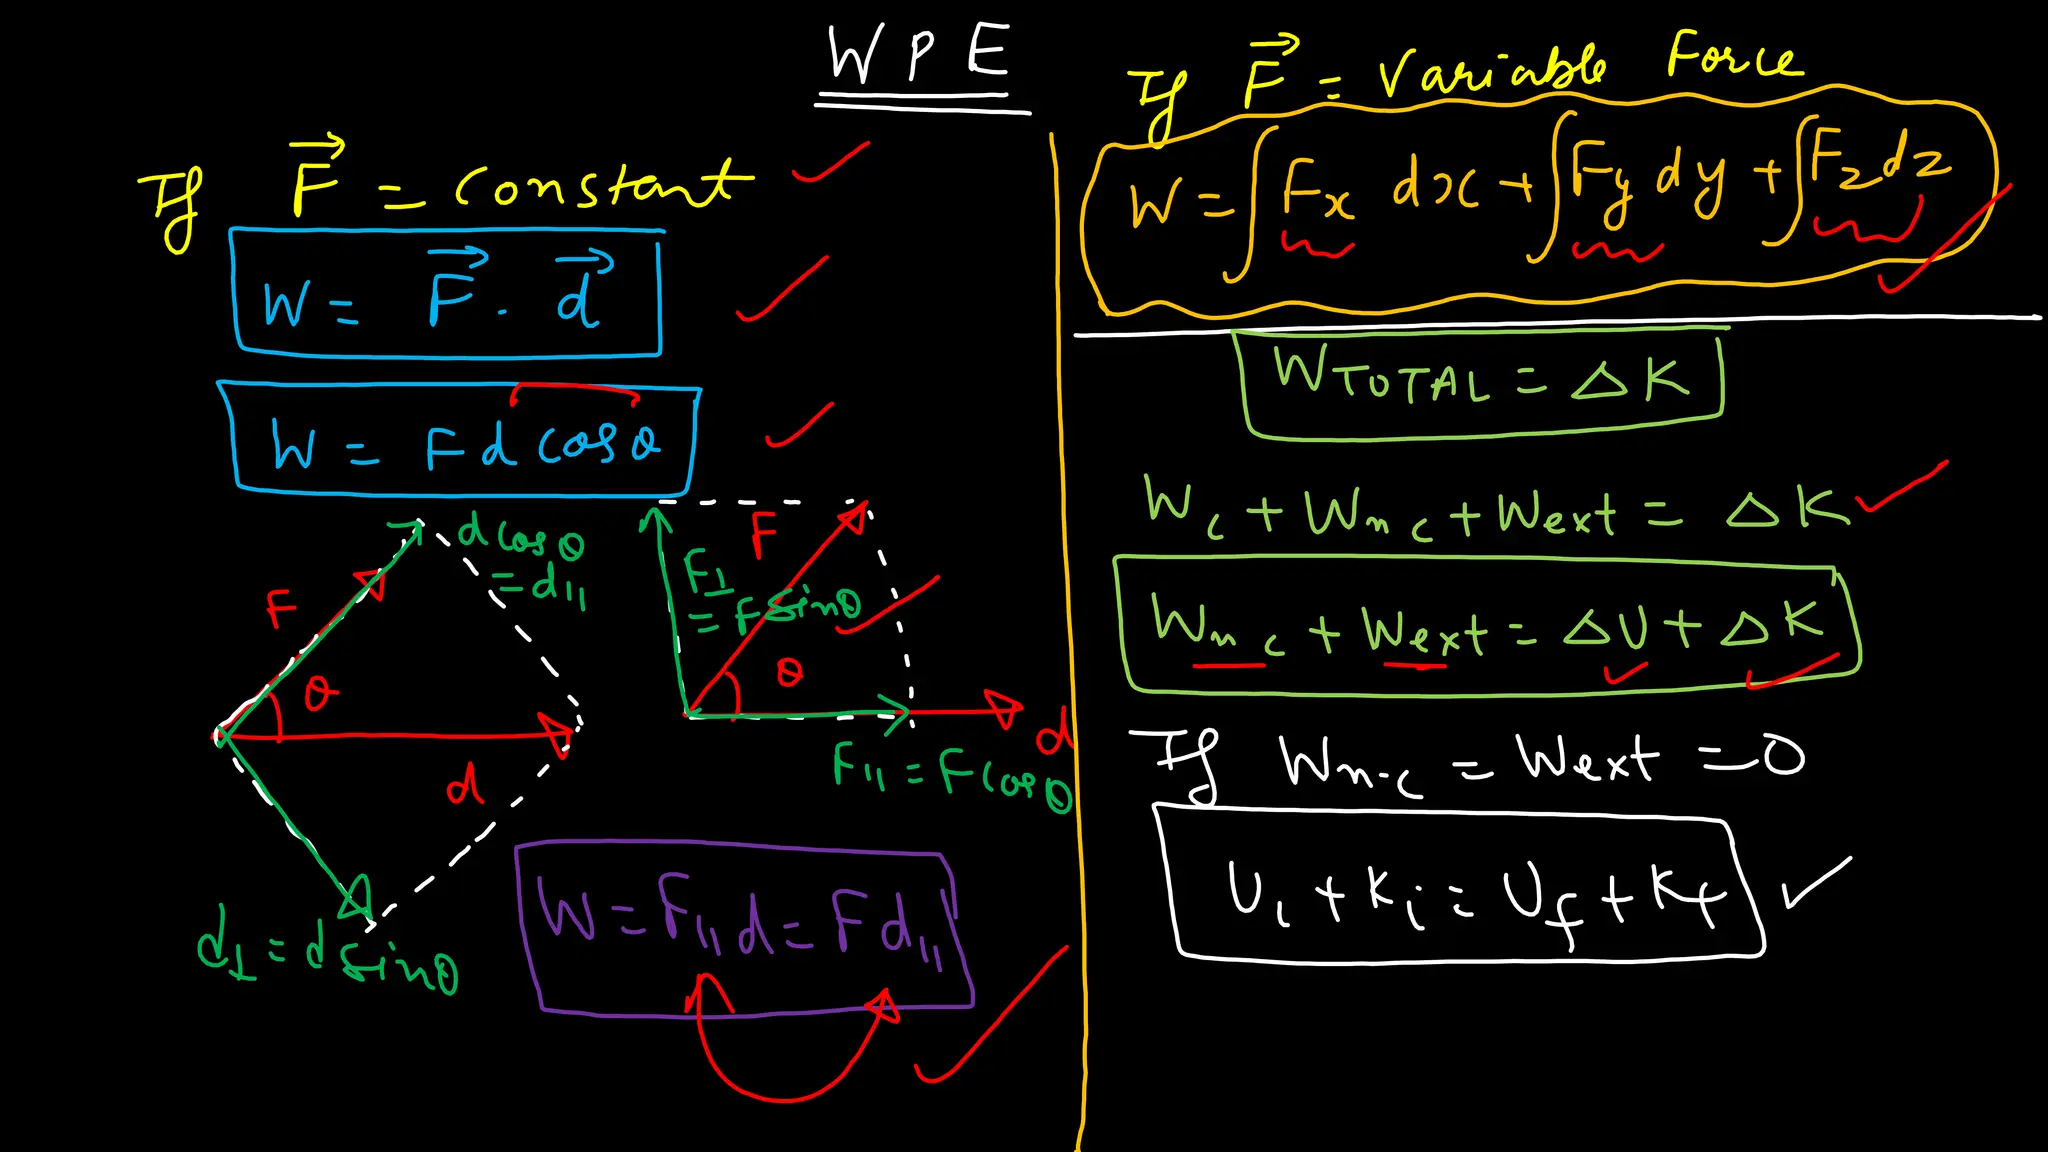 W P E
If F⃗ = constant
W = F⃗ . d⃗
W = Fd cosθ
d cosθ
= d||
F
θ
d
d⊥ = d sinθ
F
F⊥
= F sinθ
θ
d
F|| = F cosθ
W = F|| d = F d||
If F⃗ = Variable Force
W = ∫Fx dx + ∫Fy dy + ∫Fz dz
WTOTAL = ΔK
Wc + Wnc + Wext = ΔK
Wnc + Wext = ΔU + ΔK
If Wn.c = Wext = 0
Ui + Ki = Uf + Kf